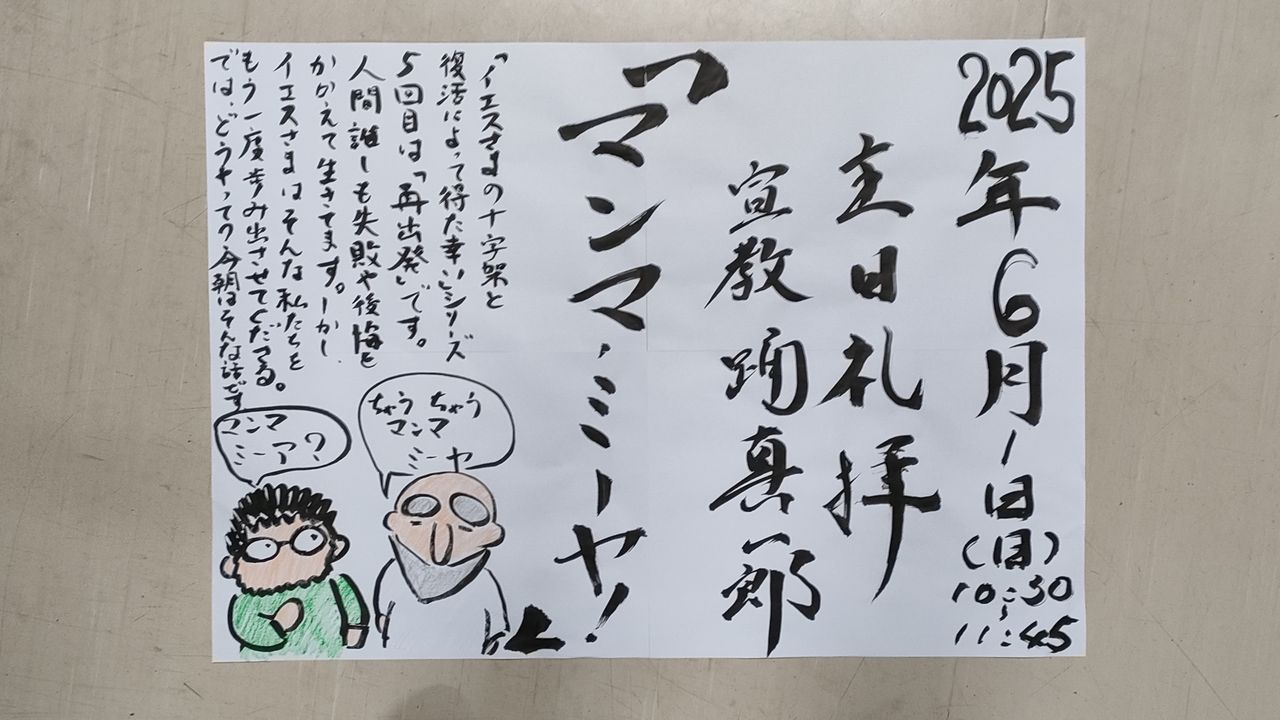 2025年6月1日(日)
10:30
~
11:45
主日礼拝
宣教 踊真一郎
「マンマ・ミーヤ!」
「イエスさまの十字架と
復活によって得た幸い」シリーズ
5回目は「再出発」です。
人間誰しも失敗や後悔を
かかえて生きてます。しかし、
イエスさまはそんな私たちを
もう一度歩み出させてくださる。
では、どうやって?今朝はそんな話です
ちゃうちゃう
マンマ
ミーヤ
マンマ
ミーア?